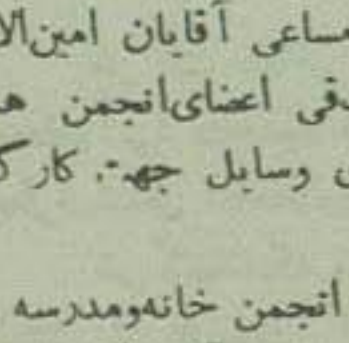 مساعی آقایان امین‌الا
قی اعضای‌انجمن ه
وسایل جهت کار ک
انجمن خانه‌ومدرسه